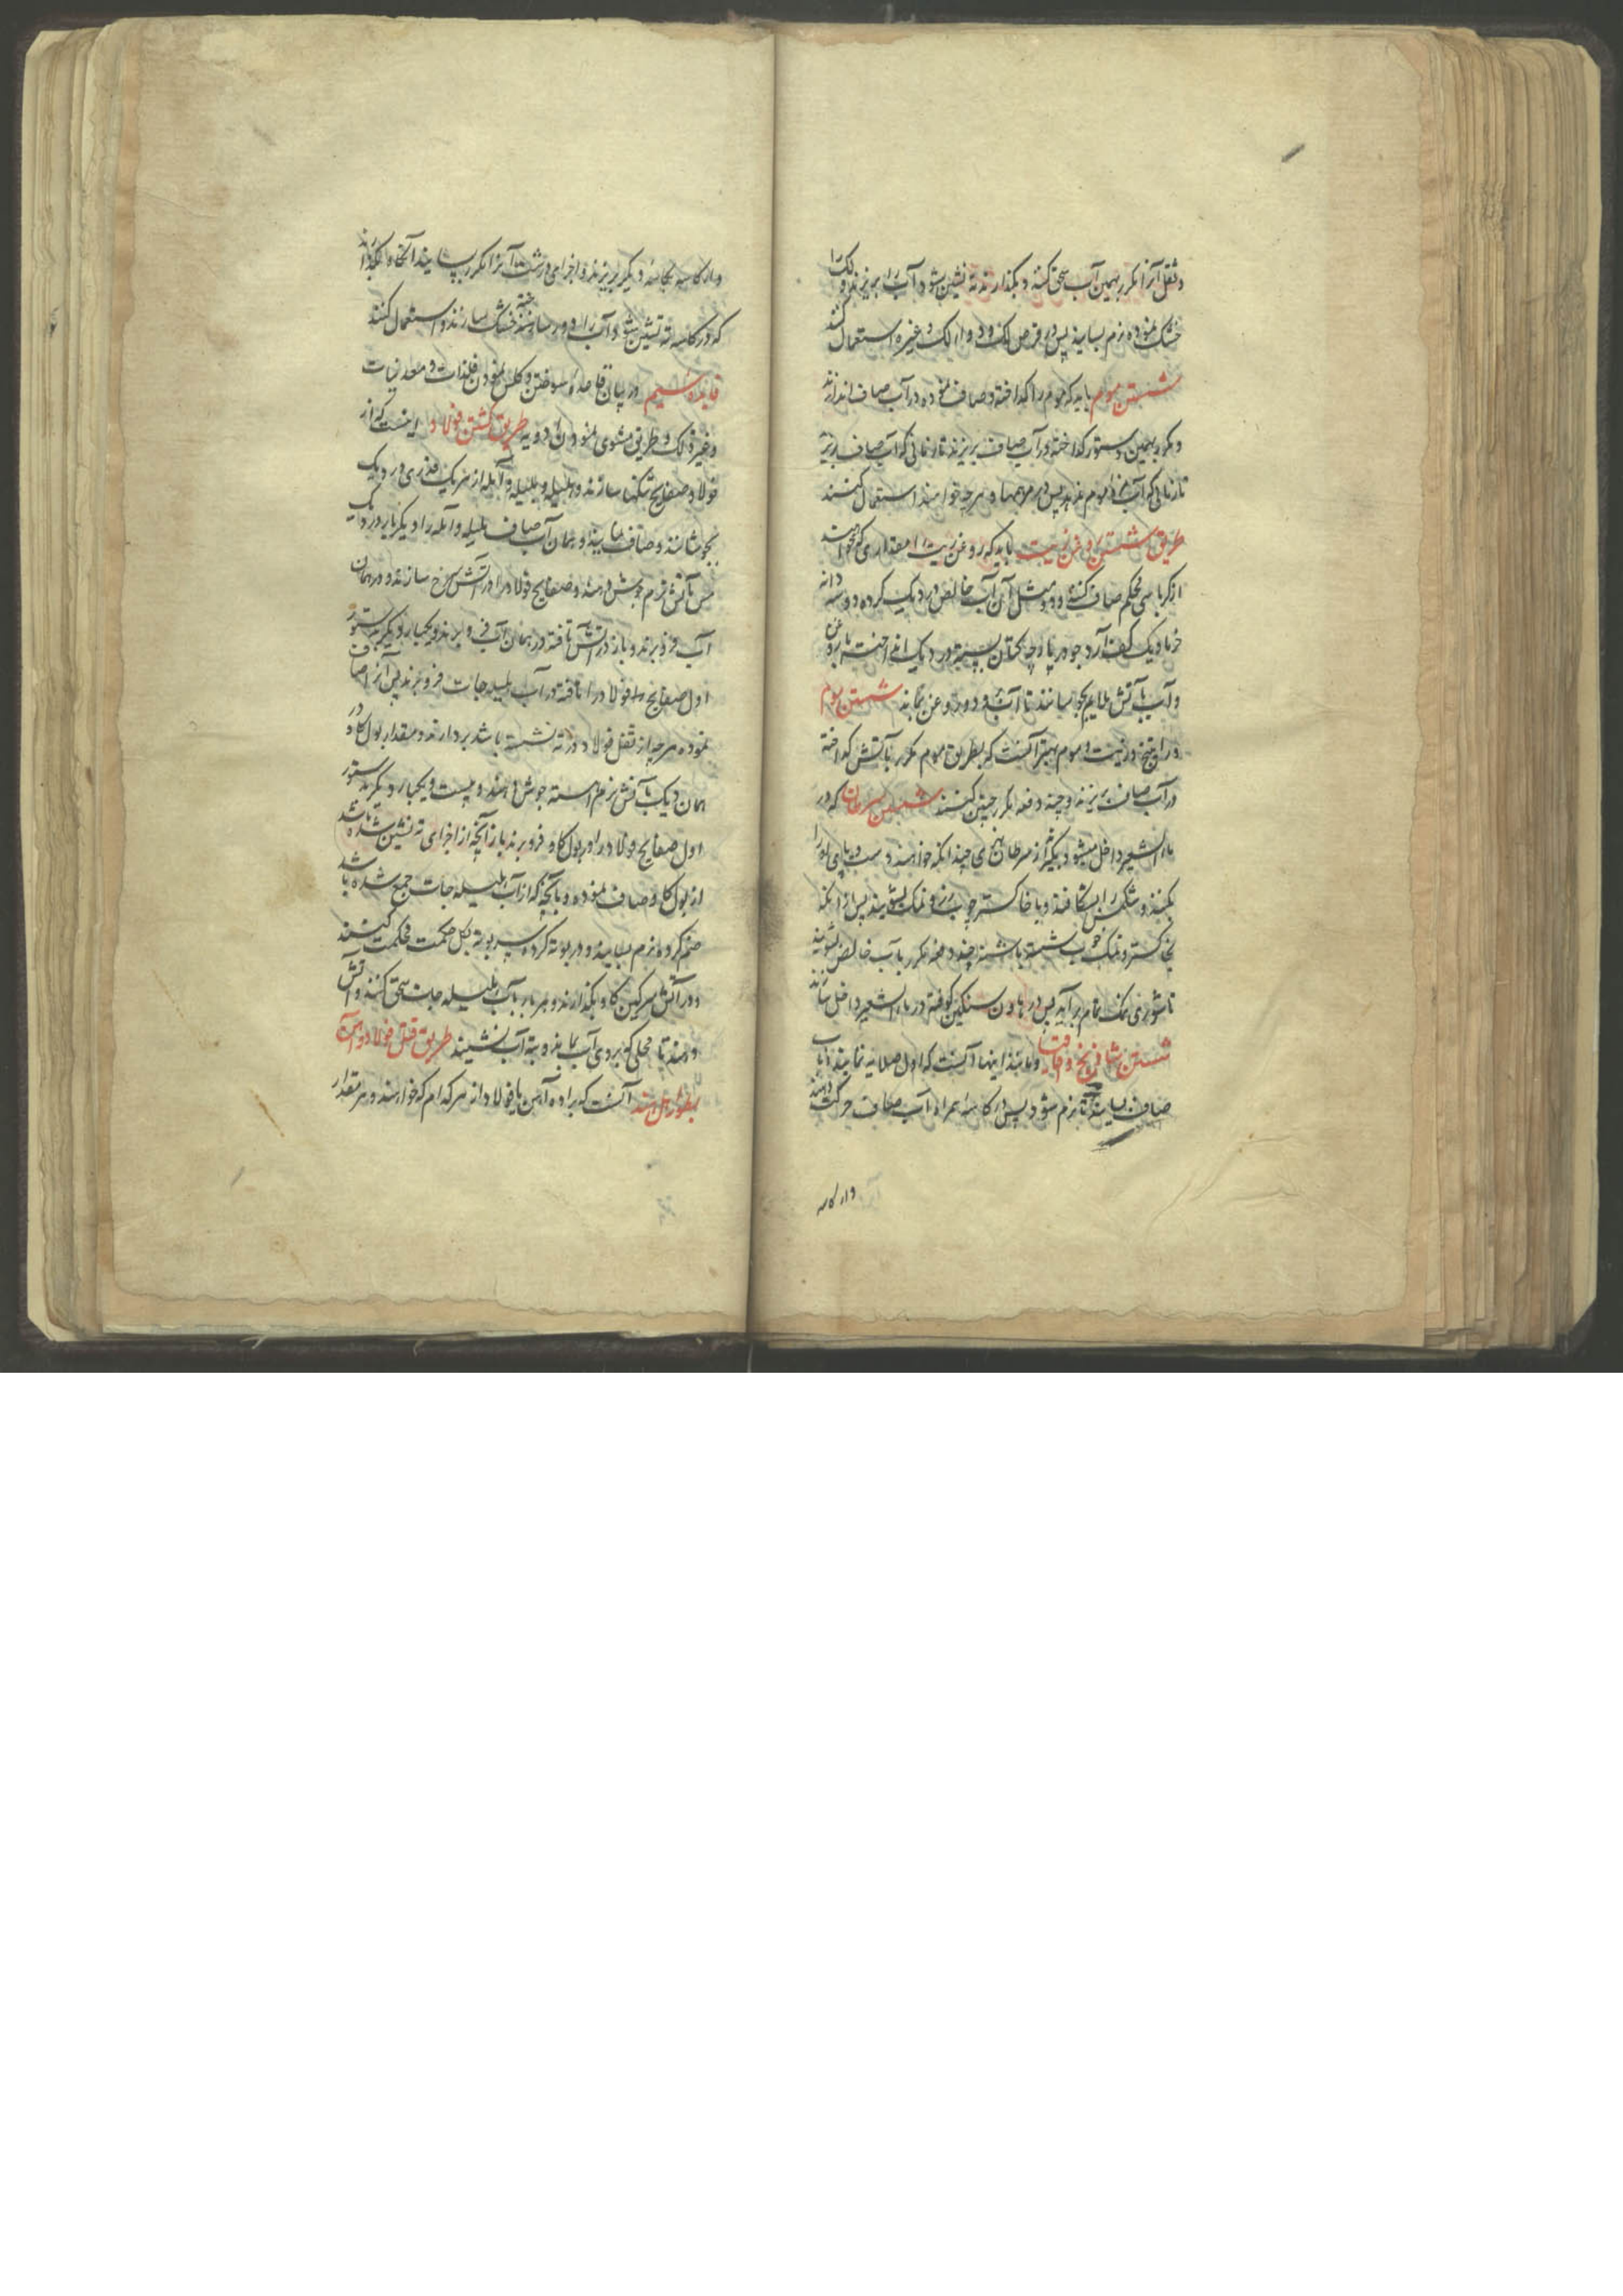 و ثقل آنرا مکرر بهمین آب سحق کنند و بگذارند ته نشین شود آب را بریزند و لک را
خشک نموده نرم بسایند پس در قرص لک و دوا لک و غیره استعمال کنند
شستن موم باید که موم را گداخته و صاف نموده در آب صاف اندازند
و مکرر بهمین دستور گداخته در آب صاف بریزند تا زمانی که آب صاف ریزند
تا زمانی که آب موم ندهد پس در مرهمها و هرچه خواهند استعمال کنند
طریق شستن روغن زیت باید که روغن زیت را مقداری که خواهند
از کرباسی محکم صاف کنند و دو مثل آن آب خالص در دیک کرده و دو سه دانه
خرما و یک کف آرد جو در پارچه کتان بسته در دیک انداخته با روغن
و آب بآتش ملایم بجوشانند تا آب رود و روغن بماند شستن موم
و راتینج و زفت و موم بهتر آنست که بطریق موم مکرر بآتش گداخته
در آب صاف بریزند و چند دفعه مکرر چنین کنند شستن سرطان که در
ماء الشعیر داخل میشود بگیرند از سرطان نهری چندانکه خواهند دست و پای او را
بکنند و شکمش را بشکافند و با خاکستر چوب رز و نمک بشویند پس از آنکه
بخاکستر و نمک خوب شسته باشند چند دفعه مکرر بآب خالص بشویند
تا شوری نمک تمام برآید پس در هاون سنگین کوفته در ماء الشعیر داخل سازند
شستن شادنج و اقلیمیا و مانند اینها آنست که اول صلایه نمایند با آب
صاف بسایند تا نرم شود پس در کاسه همراه آب صاف حرکت دهند
و از کاسه
و از کاسه بکاسه دیگر بریزند و اجزای درشت آنرا مکرر بسایند آنگاه بگذارند
که در کاسه ته نشین شود و آب را دور ساخته خشک سازند و استعمال کنند
فایده ششم در بیان قاعده سوختن و کلس نمودن فلزات و معدنیات
و غیر ذلک و طریق مشوی نمودن ادویه طریق کشتن فولاد اینست که از
فولاد صفایح تنکها سازند و هلیله و بلیله و آمله از هر یک قدری در دیک
بجوشانند و صاف نمایند و بهمان آب صاف هلیله و آمله را دیگر بار در دیک
مس بآتش نرم جوش دهند و صفایح فولاد را در آتش سرخ سازند و در همان
آب فرو برند و باز در آتش تافته در همان آب فرو برند و یکبار دیگر بدستور
اول صفایح فولاد را تافته در آب هلیله جات فرو برند پس آنرا صاف
نموده هرچه از ثفل فولاد در ته نشسته باشد بردارند و مقدار بول گاو در
همان دیک بآتش نرم آهسته جوش دهند و بیست و یکبار دیگر بدستور
اول صفایح فولاد را در بول گاو فرو برند باز آنچه از اجزای ته نشین شده باشد
از بول گاو صاف نموده و بآنچه که از آب هلیله جات جمع شده باشد
ضم کرده نرم بسایند و در بوته کرده سر بوته بگل حکمت محکم کنند
و در آتش سرگین گاو بگذارند و هر بار بآب هلیله جات سحق کنند و آتش
دهند تا محلی که بر روی آب بماند و بته آب ننشیند طریق قتل فولاد و آهن
بطور اهل هند آنست که براده آهن یا فولاد از هر کدام که خواهند و هر مقدار